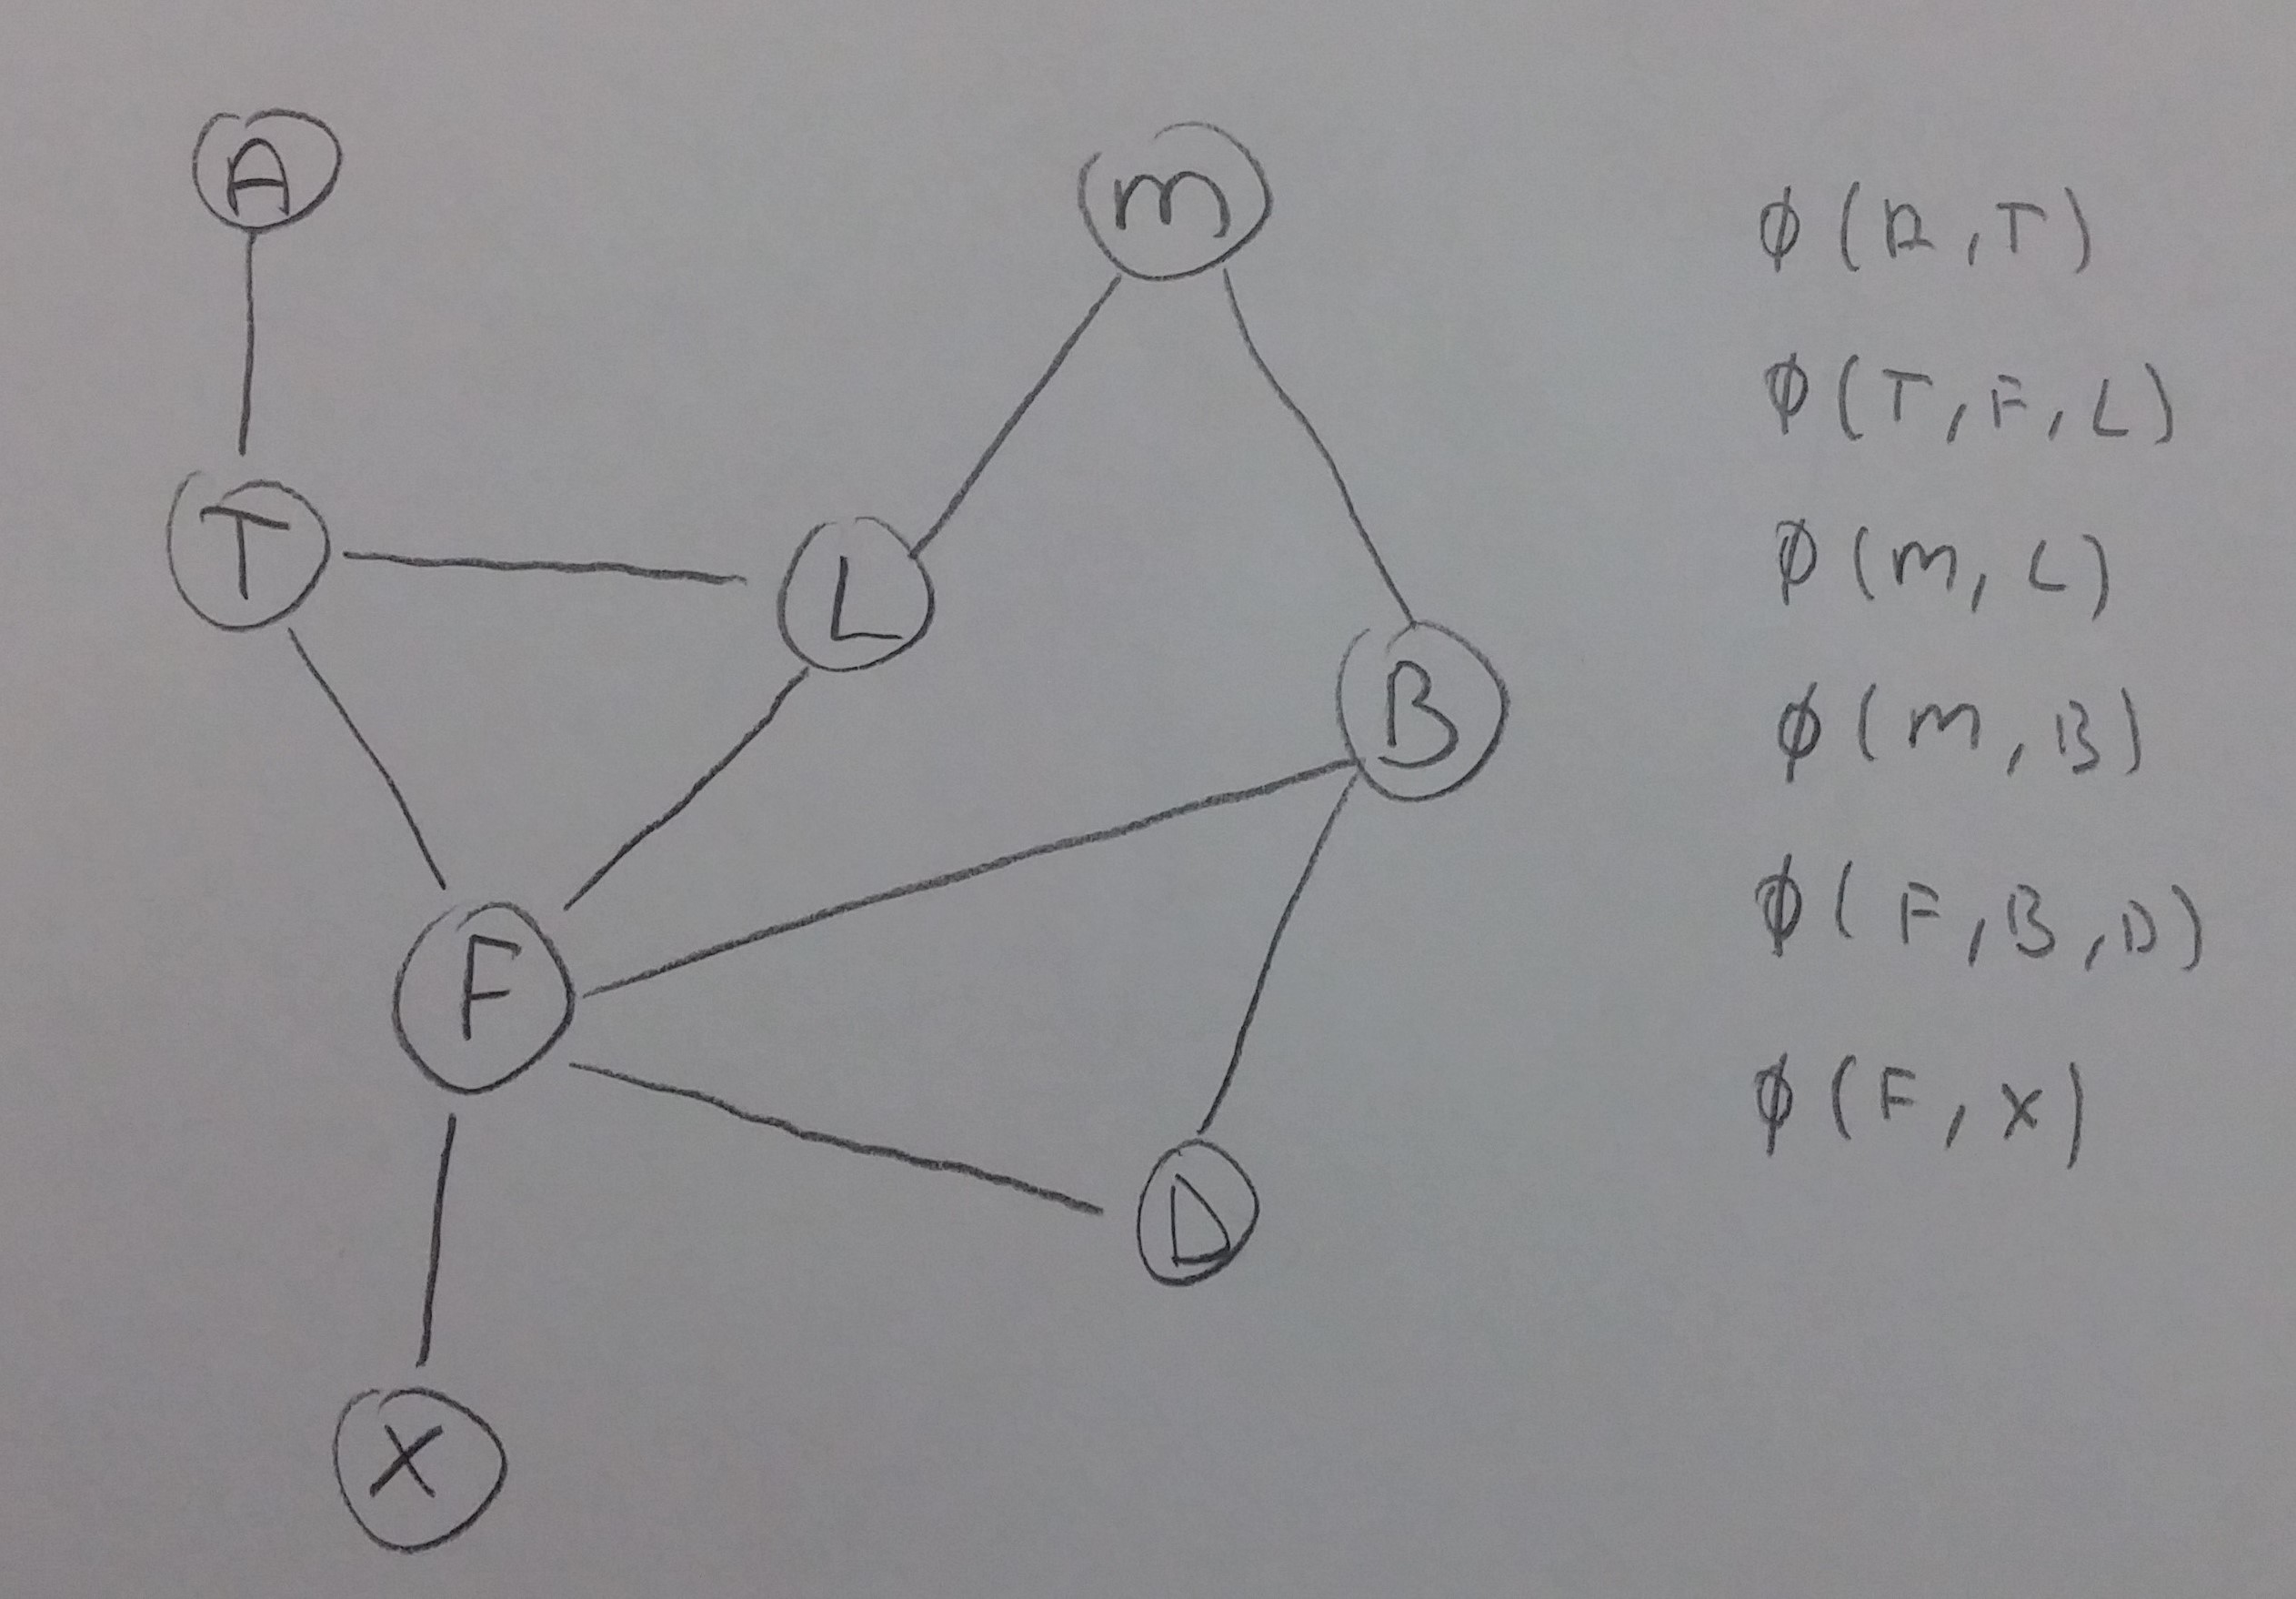 A
m
T
L
B
F
D
X
ϕ(A,T)
ϕ(T,F,L)
ϕ(m,L)
ϕ(m,B)
ϕ(F,B,D)
ϕ(F,X)